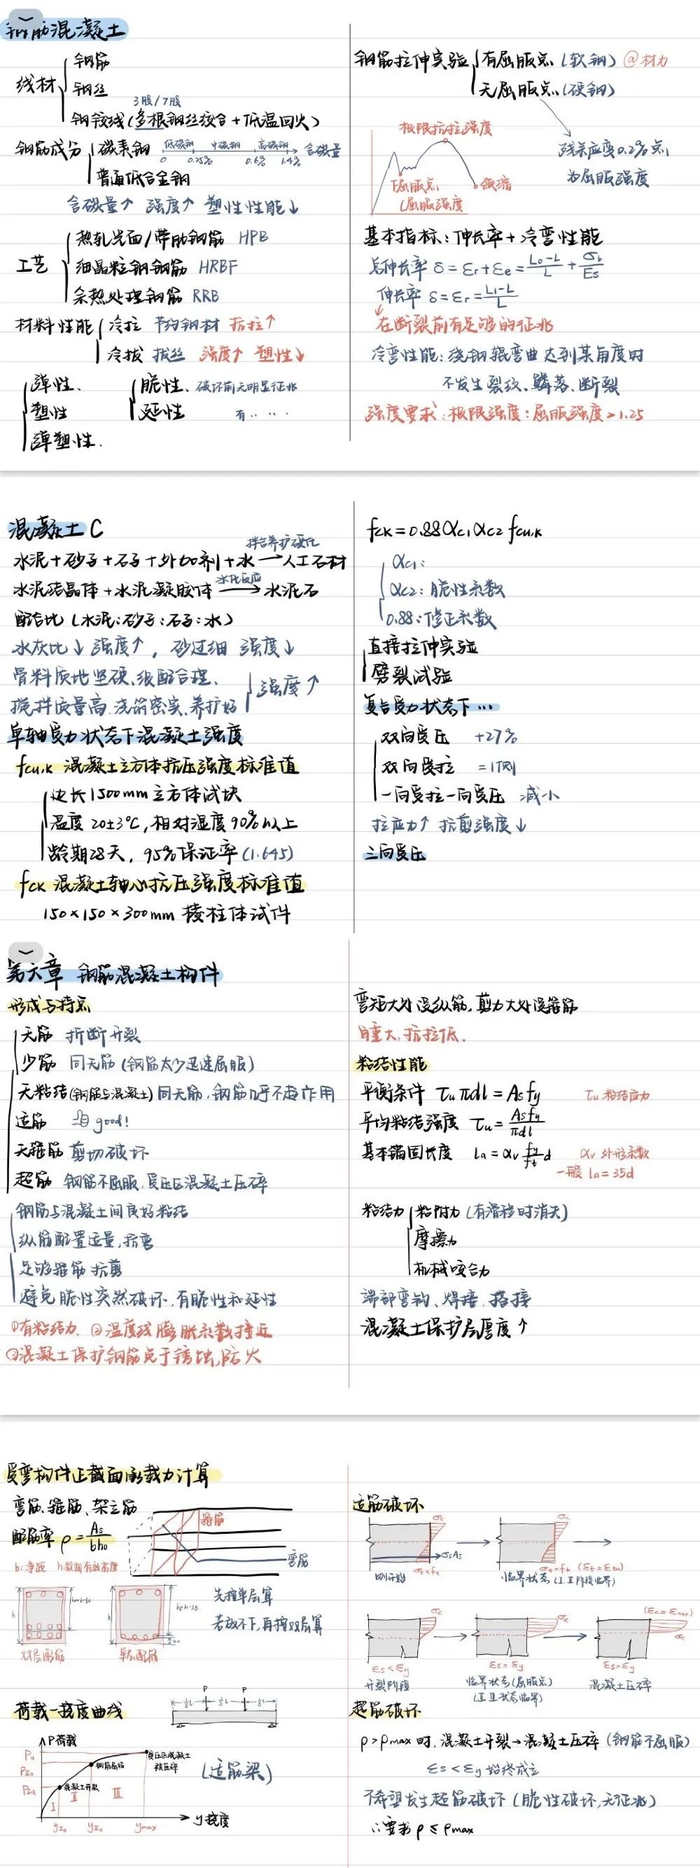 钢筋混凝土
线材
钢筋
钢丝
3股/7股
钢铰线(多根钢丝绞合+低温回火)
钢筋成分
碳素钢
低碳钢 中碳钢 高碳钢 含碳量
0 0.25% 0.6% 1.4%
普通低合金钢
含碳量↑ 强度↑ 塑性性能↓
工艺
热轧光面/带肋钢筋 HPB
细晶粒钢钢筋 HRBF
余热处理钢筋 RRB
材料性能
冷拉 节约钢材 抗拉↑
冷拔 拔丝 强度↑ 塑性↓
弹性、
塑性
弹塑性.
脆性、破坏前无明显征兆
延性 有....
钢筋拉伸实验
有屈服点(软钢) @材力
无屈服点(硬钢)
残余应变0.2%点
为屈服强度
极限抗拉强度
下屈服点
(屈服强度
颈缩
基本指标:伸长率+冷弯性能
总伸长率 δ=εr+εe=(L₀-L)/L+σb/Es
伸长率 δ=εr=(L₁-L)/L
在断裂前有足够的征兆
冷弯性能:绕钢辊弯曲达到某角度时
不发生裂纹、鳞落、断裂
强度要求:极限强度:屈服强度>1.25
混凝土 C
拌合养护硬化
水泥+砂子+石子+外加剂+水→人工石材
水泥结晶体+水泥凝胶体 水化反应→水泥石
配合比(水泥:砂子:石子:水)
水灰比↓强度↑,砂过细 强度↓
骨料质地坚硬、级配合理、
搅拌质量高、浇筑密实、养护好
强度↑
单轴受力状态下混凝土强度
fcu,k 混凝土立方体抗压强度标准值
边长1500mm立方体试块
温度20±3℃,相对湿度90%以上
龄期28天,95%保证率(1.645)
fck 混凝土轴心抗压强度标准值
150×150×300mm 棱柱体试件
fck=0.88αc1αc2fcu,k
αc1:
αc2:脆性系数
0.88:修正系数
直接拉伸实验
劈裂试验
复合受力状态下…
双向受压 +27%
双向受拉 =1向
一向受拉一向受压 减小
拉应力↑ 抗剪强度↓
三向受压
第六章 钢筋混凝土构件
形成与特点
无筋 折断开裂
少筋 同无筋(钢筋太少迅速屈服)
无粘结(钢筋与混凝土)同无筋,钢筋几乎不起作用
适筋 good!
无箍筋 剪切破坏
超筋 钢筋不屈服,受压区混凝土压碎
钢筋与混凝土间良好粘结
纵筋配置适量,抗弯
足够箍筋 抗剪
避免脆性突然破坏,有脆性和延性
①有粘结力 ②温度线膨胀系数接近
③混凝土保护钢筋免于锈蚀,防火
弯矩大处设纵筋,剪力大处设箍筋
自重大,抗拉低.
粘结性能
平衡条件 τuπdl=Asfy τu 粘结应力
平均粘结强度 τu=Asfy/πdl
基本锚固长度 la=αv(fy/ft)d αv 外形系数
一般 la=35d
粘结力
粘附力(有滑移时消失)
摩擦力
机械咬合力
端部弯钩、焊接、搭接
混凝土保护层厚度↑
受弯构件正截面承载力计算
弯筋、箍筋、架立筋
配筋率 ρ=As/bh₀
b:净距 h:截面有效高度
箍筋
弯筋
双层配筋
单层配筋
先按单层算
若放不下,再按双层算
荷载一挠度曲线
P P
P荷载
受压区混凝土
被压碎
钢筋屈服
混凝土开裂
I II III
ymax
y挠度
(适筋梁)
适筋破坏
σc
σsAs
刚开始
临界状态(I.II阶段临界)
εs<εy
开裂阶段
εs=εy
临界状态(屈服点)
εs=εy
混凝土压碎
超筋破坏
ρ>ρmax时,混凝土开裂→混凝土压碎(钢筋不屈服)
εs<εy 始终成立
不希望发生超筋破坏(脆性破坏,无征兆)
∴要求 ρ≤ρmax